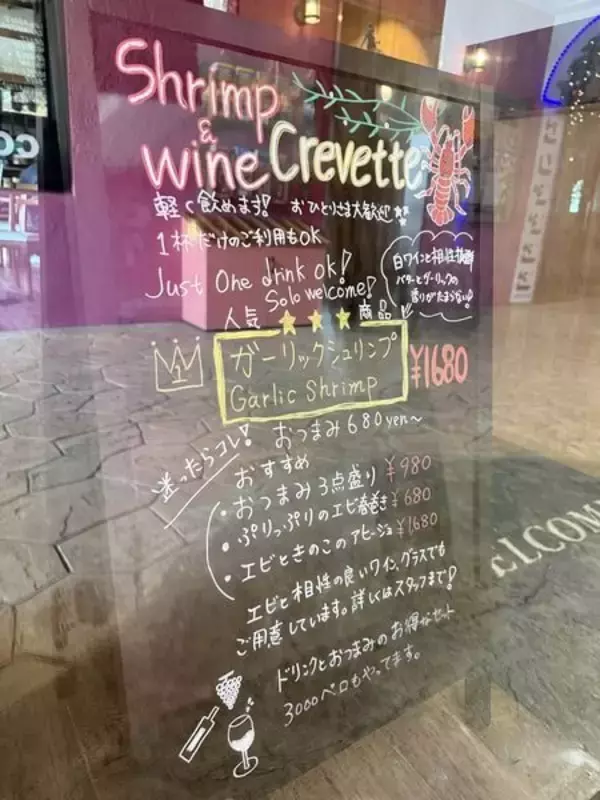 Shrimp
&
wine Crevette
軽く飲めます! おひとりさま大歓迎
1杯だけのご利用もOK
Just One drink ok!
Solo welcome!
白ワインと相性抜群
バターとガーリックの
香りがたまらない!
人気 ★★★ 商品
1
ガーリックシュリンプ
Garlic Shrimp
¥1680
迷ったらコレ!
おつまみ680yen〜
おすすめ
・おつまみ3点盛り ¥980
・ぷりっぷりのエビ春巻き ¥680
・エビときのこのアヒージョ ¥1680
エビと相性の良いワイン、グラスでも
ご用意しています。詳しくはスタッフまで!
ドリンクとおつまみのお得なセット
3000ベロもやってます。
ELCOM